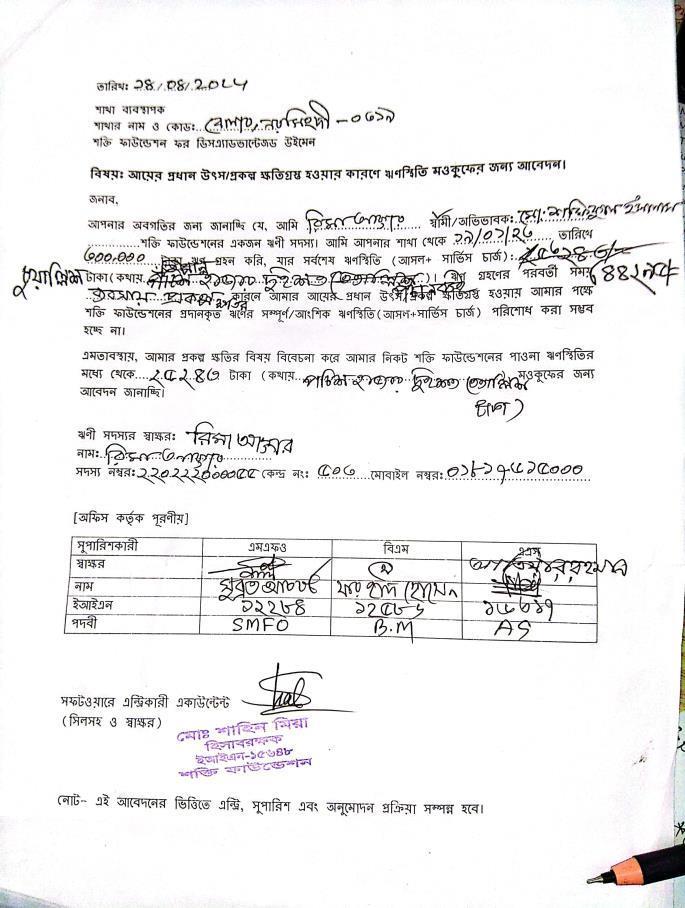 তারিখঃ ২৪/০৪/২০২৫
শাখা ব্যবস্থাপক
শাখার নাম ও কোডঃ বেলাব, নরসিংদী - ০৬১৯
শক্তি ফাউন্ডেশন ফর ডিসএ্যাডভান্টেজড উইমেন
বিষয়ঃ আয়ের প্রধান উৎস/প্রকল্প ক্ষতিগ্রস্ত হওয়ার কারণে ঋণস্থিতি মওকুফের জন্য আবেদন।
জনাব,
আপনার অবগতির জন্য জানাচ্ছি যে, আমি রিমা আক্তার স্বামী/অভিভাবক: মো: শফিকুল ইসলাম
শক্তি ফাউন্ডেশনের একজন ঋণী সদস্যা। আমি আপনার শাখা থেকে তারিখে
টাকা ঋণ গ্রহন করি, যার সর্বশেষ ঋণস্থিতি (আসল+ সার্ভিস চার্জ):
চুয়াল্লিশ টাকা (কথায় হাজার দুইশত ) ঋণ গ্রহণের পরবর্তী সময়
ব্যবসায় কারণে আমার আয়ের প্রধান উৎস/প্রকল্প ক্ষতিগ্রস্ত হওয়ায় আমার পক্ষে
শক্তি ফাউন্ডেশনের প্রদানকৃত ঋণের সম্পূর্ণ/আংশিক ঋণস্থিতি(আসল+সার্ভিস চার্জ) পরিশোধ করা সম্ভব
হচ্ছে না।
এমতাবস্থায়, আমার প্রকল্প ক্ষতির বিষয় বিবেচনা করে আমার নিকট শক্তি ফাউন্ডেশনের পাওনা ঋণস্থিতির
মধ্যে থেকে ২৫২৪৩ টাকা (কথায় পঁচিশ হাজার দুইশত তেতাল্লিশ মওকুফের জন্য
আবেদন জানাচ্ছি। টাকা)
ঋণী সদস্যর স্বাক্ষরঃ রিমা আক্তার
নামঃ রিমা আক্তার
সদস্য নম্বরঃ ২২০২২২০০০০৫৫ কেন্দ্র নং: ৫০৬ মোবাইল নম্বর:
[অফিস কর্তৃক পূরণীয়]
সুপারিশকারী এমএফও বিএম এএস
স্বাক্ষর
নাম সুব্রত আচার্য্য হোসেন
ইআইএন ১২২৮৪
পদবী SMFO B.M AS
সফটওয়ারে এন্ট্রিকারী একাউন্টেন্ট
(সিলসহ ও স্বাক্ষর)
মোঃ শাহিন মিয়া
হিসাবরক্ষক
ইআইএন-১৫৬৪৮
শক্তি ফাউন্ডেশন
নোট- এই আবেদনের ভিত্তিতে এন্ট্রি, সুপারিশ এবং অনুমোদন প্রক্রিয়া সম্পন্ন হবে।